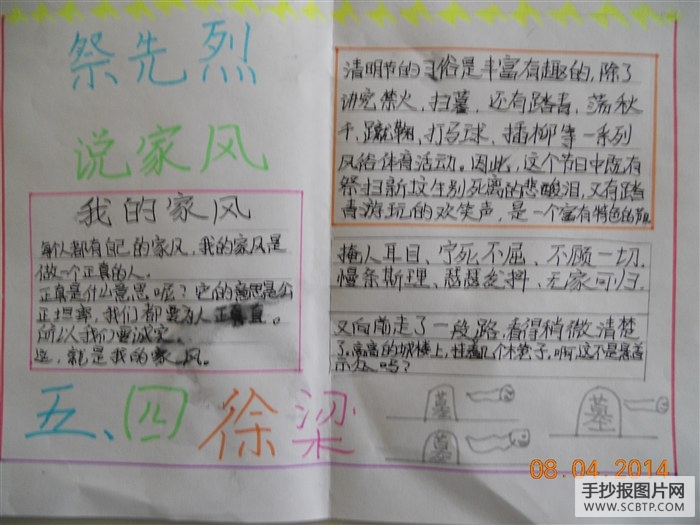 祭先烈
说家风
我的家风
每个人都有自己的家风,我的家风是
做一个正真的人。
正真是什么意思呢?它的意思是公
正坦率,我们都要为人正直。
所以我们要诚实。
这,就是我的家风。
五、四 徐 梁
清明节的习俗是丰富有趣的,除了
讲究禁火、扫墓,还有踏青、荡秋
千、蹴鞠、打马球、插柳等一系列
风俗体育活动。因此,这个节日中既有
祭扫新坟生别死离的悲酸泪,又有踏
青游玩的欢笑声,是一个富有特色的节日
掩人耳目、宁死不屈、不顾一切、
慢条斯理、瑟瑟发抖、无家可归.
又向前走了一段路,看得稍微清楚
了,高高的城楼上,挂着几个木笼子。啊,这不是
吗?
墓
墓
墓
08.04.2014
手抄报图片网
WWW.SCBTP.COM